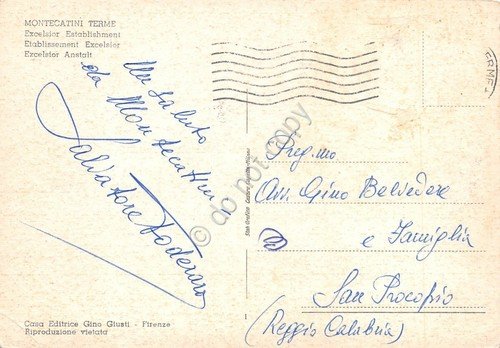 MONTECATINI TERME
Excelsior Establishment
Etablissement Excelsior
Excelsior Anstalt
Un saluto
da Montecatini
Salvatore Foderaro
Preg.mo
Avv. Gino Belvedere
e Famiglia
San Procopio
(Reggio Calabria)
Casa Editrice Gino Giusti - Firenze
Riproduzione vietata
do not copy